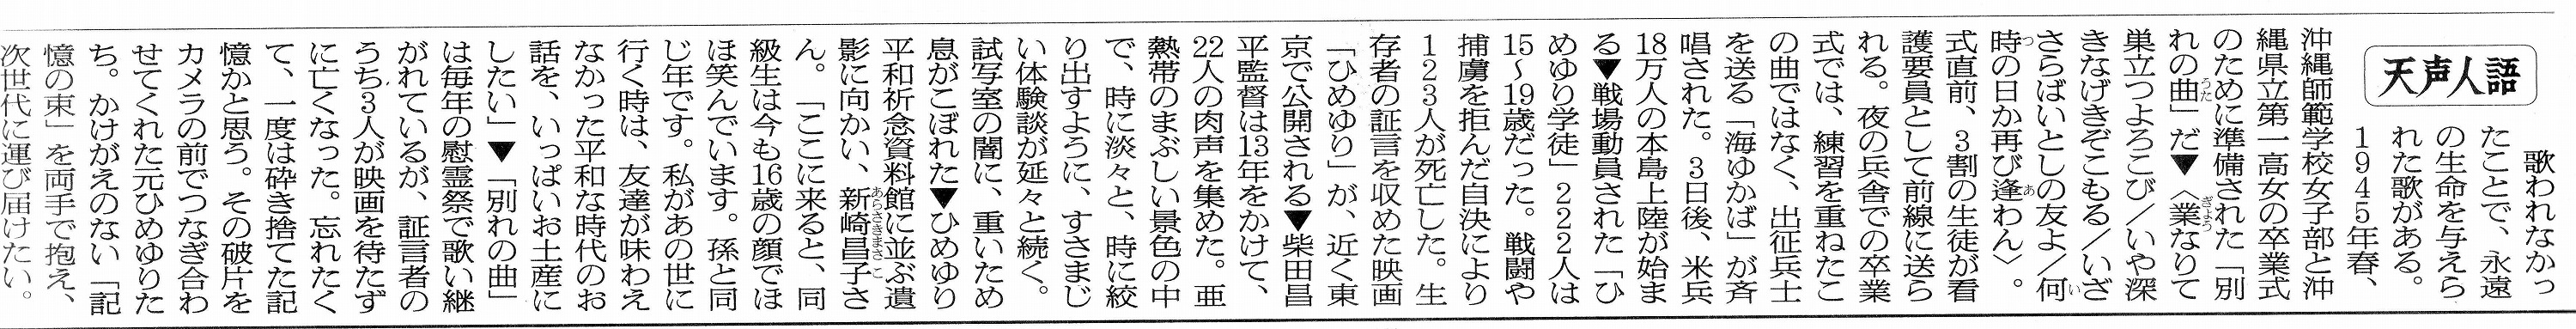 天声人語
歌われなかっ
たことで、永遠
の生命を与えら
れた歌がある。
1945年春、
沖縄師範学校女子部と沖
縄県立第一高女の卒業式
のために準備された「別
れの曲」だ▼〈業なりて
巣立つよろこび/いや深
きなげきぞこもる/いざ
さらばいとしの友よ/何
時の日か再び逢わん〉。
式直前、3割の生徒が看
護要員として前線に送ら
れる。夜の兵舎での卒業
式では、練習を重ねたこ
の曲ではなく、出征兵士
を送る「海ゆかば」が斉
唱された。3日後、米兵
18万人の本島上陸が始ま
る▼戦場動員された「ひ
めゆり学徒」222人は
15〜19歳だった。戦闘や
捕虜を拒んだ自決により
123人が死亡した。生
存者の証言を収めた映画
「ひめゆり」が、近く東
京で公開される▼柴田昌
平監督は13年をかけて、
22人の肉声を集めた。亜
熱帯のまぶしい景色の中
で、時に淡々と、時に絞
り出すように、すさまじ
い体験談が延々と続く。
試写室の闇に、重いため
息がこぼれた▼ひめゆり
平和祈念資料館に並ぶ遺
影に向かい、新崎昌子さ
ん。「ここに来ると、同
級生は今も16歳の顔でほ
ほ笑んでいます。孫と同
じ年です。私があの世に
行く時は、友達が味わえ
なかった平和な時代のお
話を、いっぱいお土産に
したい」▼「別れの曲」
は毎年の慰霊祭で歌い継
がれているが、証言者の
うち3人が映画を待たず
に亡くなった。忘れたく
て、一度は砕き捨てた記
憶かと思う。その破片を
カメラの前でつなぎ合わ
せてくれた元ひめゆりた
ち。かけがえのない「記
憶の束」を両手で抱え、
次世代に運び届けたい。